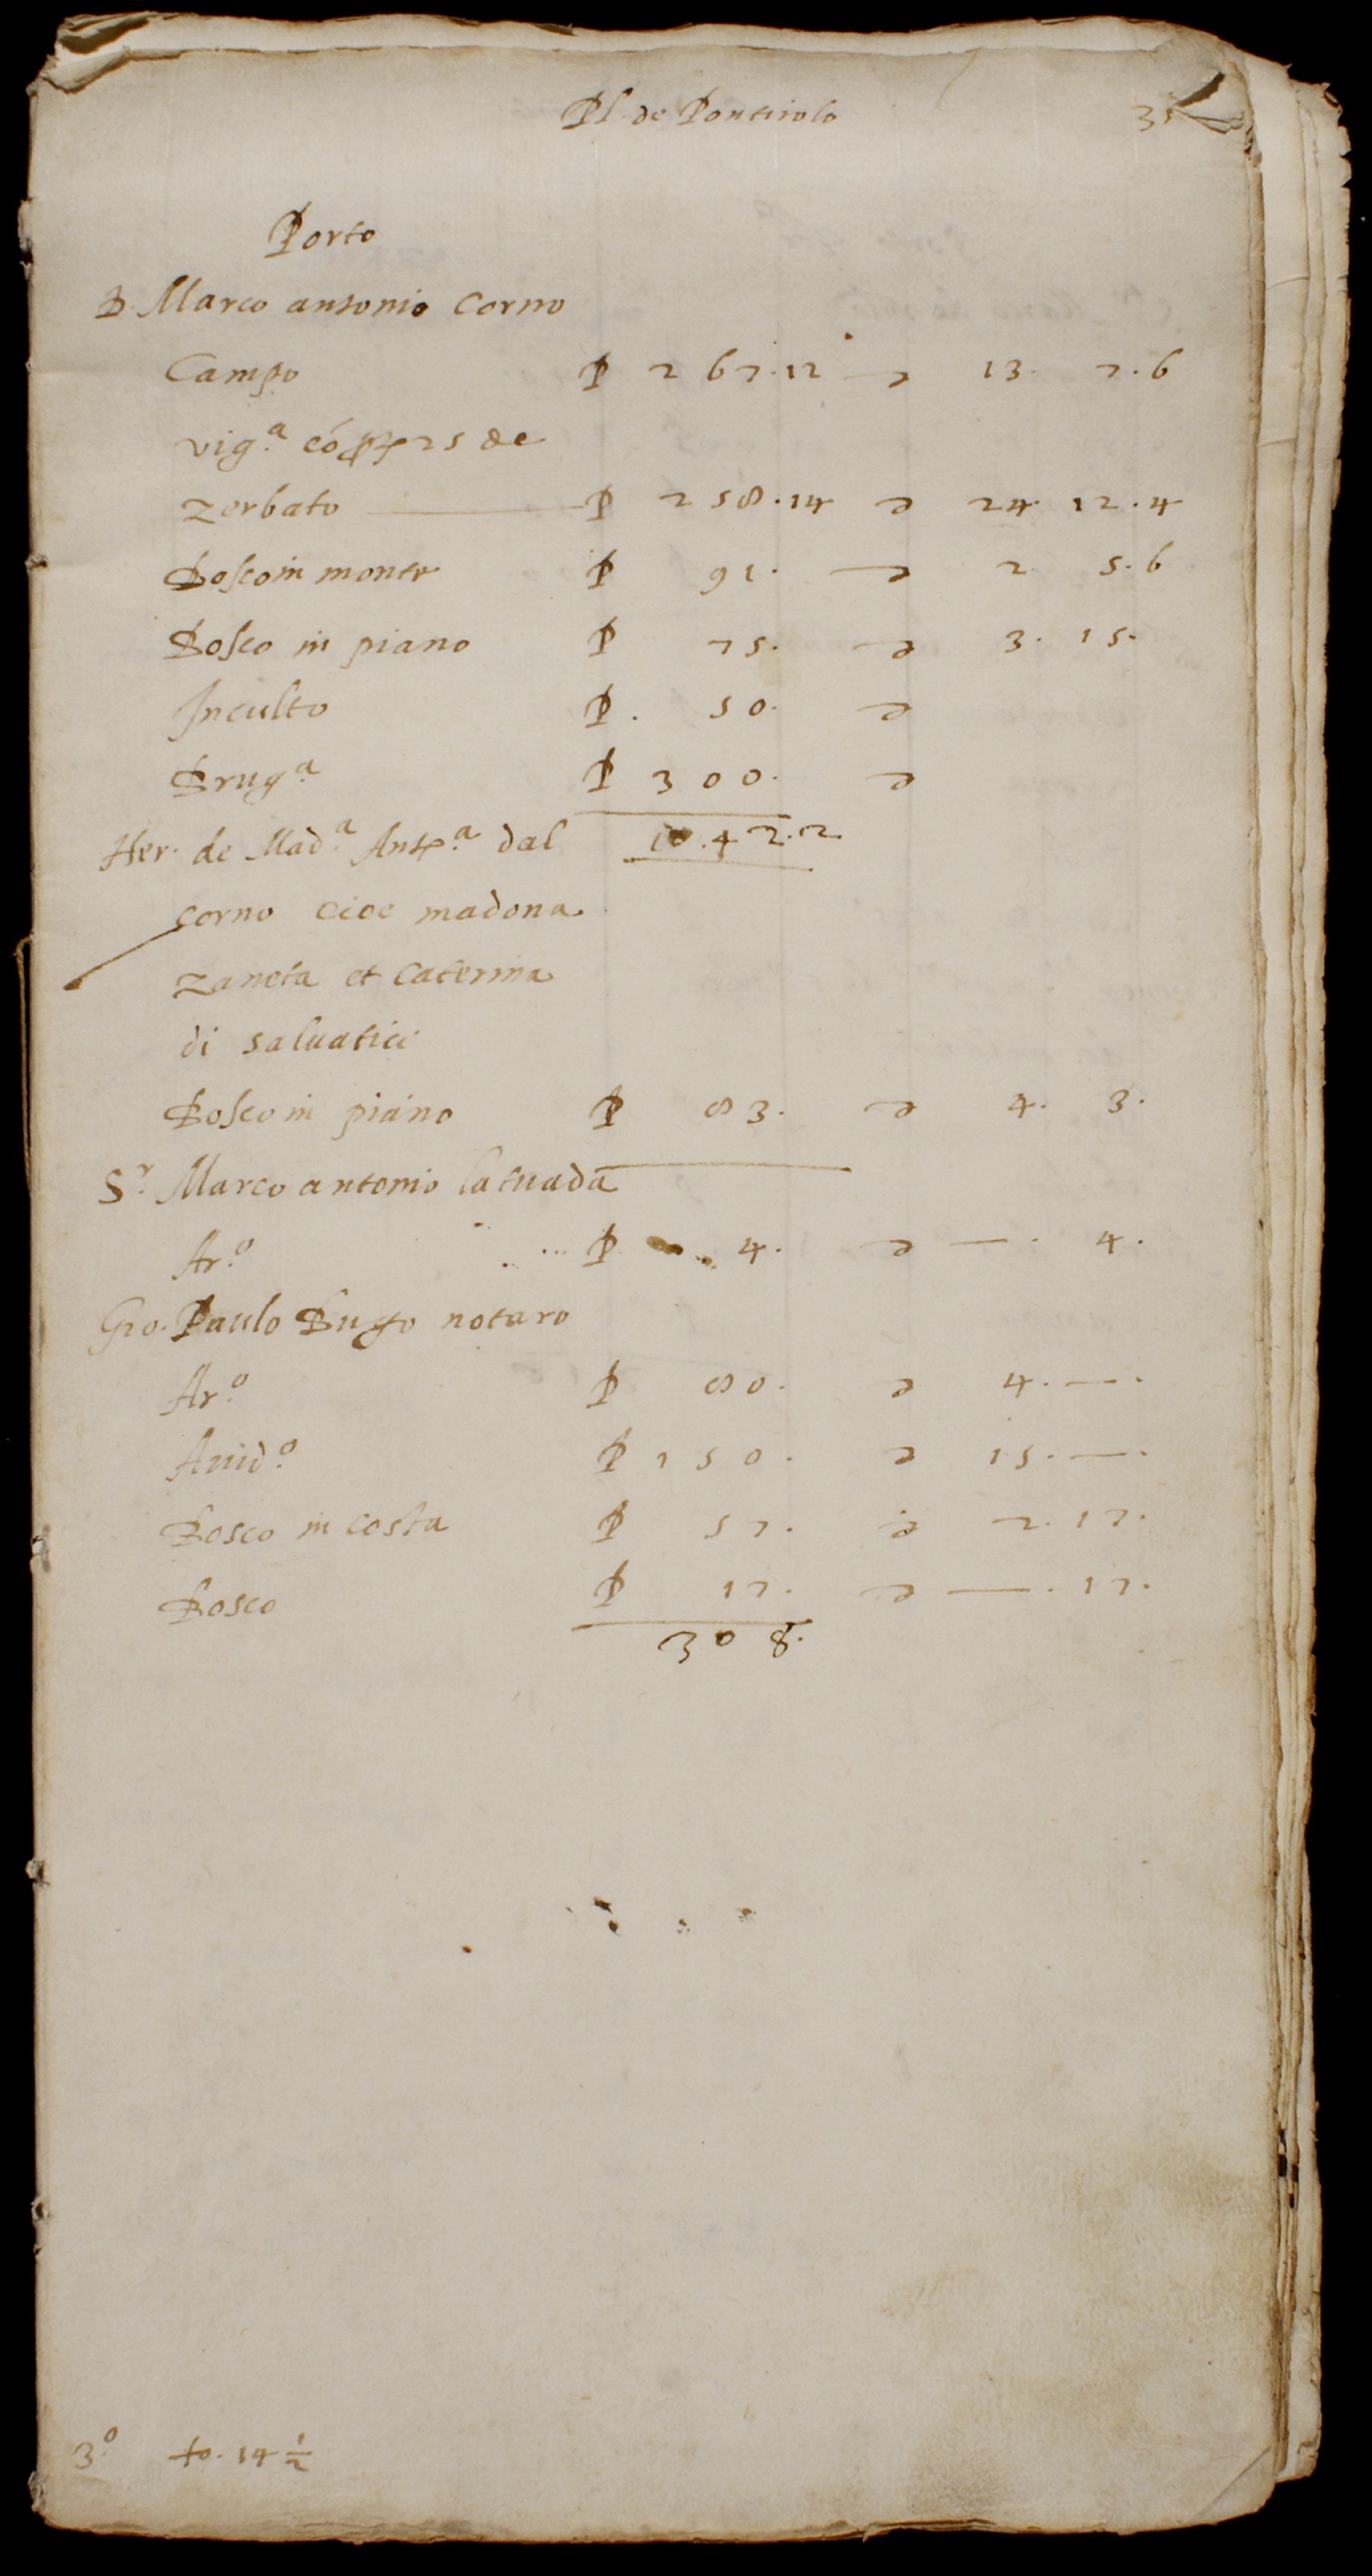 Pl. de Pontirolo 35
Porto
D. Marco antonio Corno
Campo P 267.12 — 13. 7.6
vig.a 25 de
zerbato P 258.14 24. 12.4
Bosco in monte P 91. — 2 5.6
Bosco in piano P 75. 3. 15.
Inculto P. 50.
Brug.a P 300.
Her. de Mad.a Ant.a dal 10.42.2
corno cioe madona
zaneta et Caterina
di saluatici
Bosco in piano P 83. 4. 3.
S.r Marco antonio latuada
Ar.o P 4. — . 4.
Gio. Paulo notaro
Ar.o P 80. 4. — .
Auid.o P 150. 15. — .
Bosco in costa P 57. 2. 17.
Bosco P 17. — . 17.
308.
3.o fo. 14 1/2